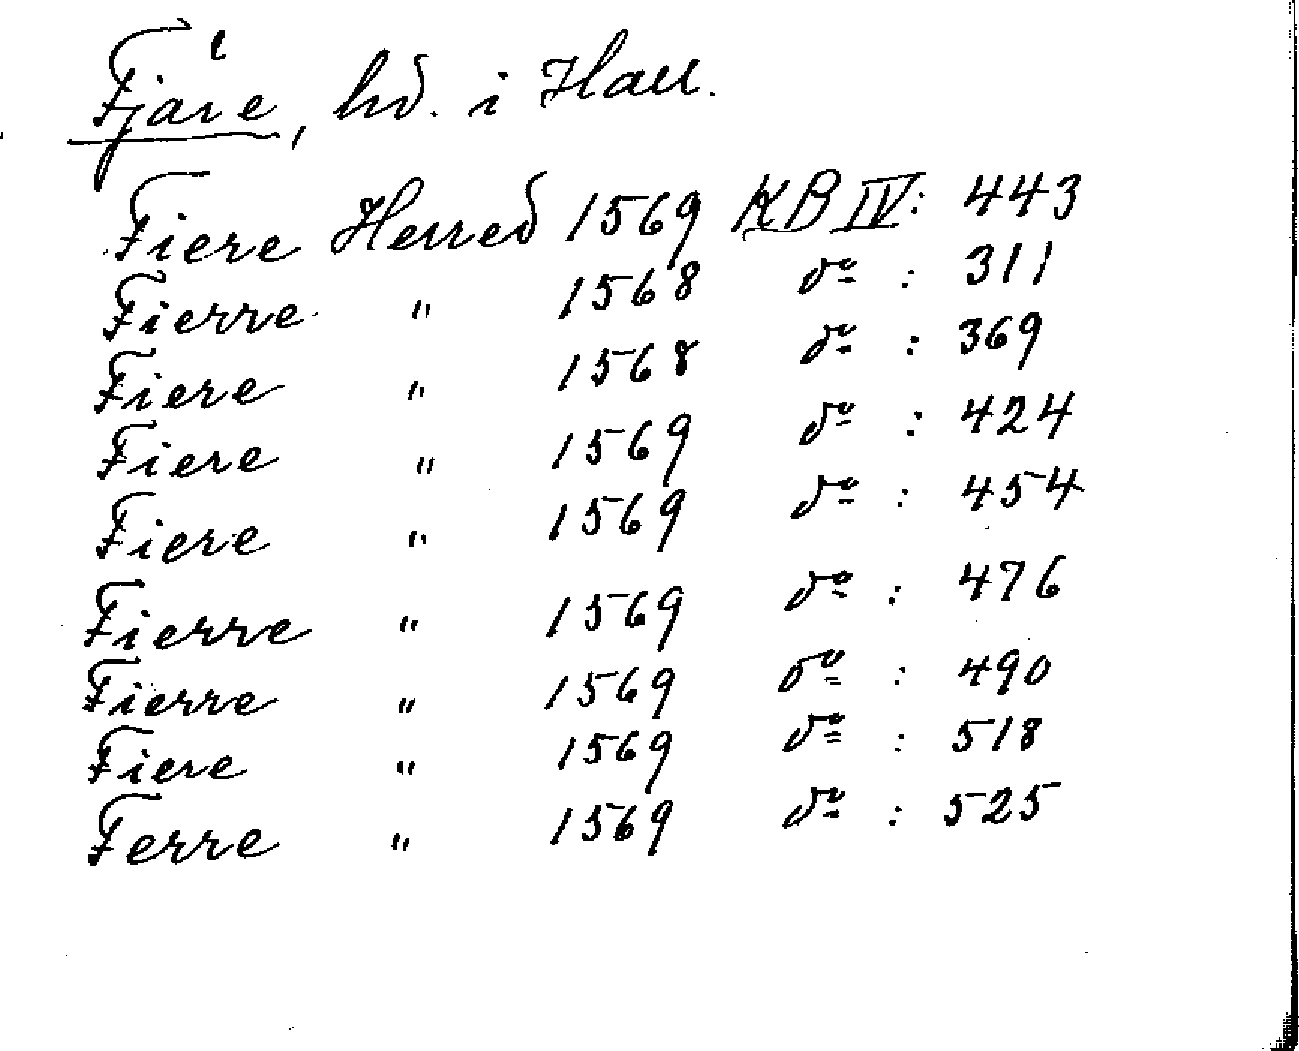 Fjäre, hd. i Hall.
Fiere Herred 1569 KB IV: 443
Fierre " 1568 do : 311
Fiere " 1568 do : 369
Fiere " 1569 do : 424
Fiere " 1569 do : 454
Fierre " 1569 do : 476
Fierre " 1569 do : 490
Fiere " 1569 do : 518
Ferre " 1569 do : 525